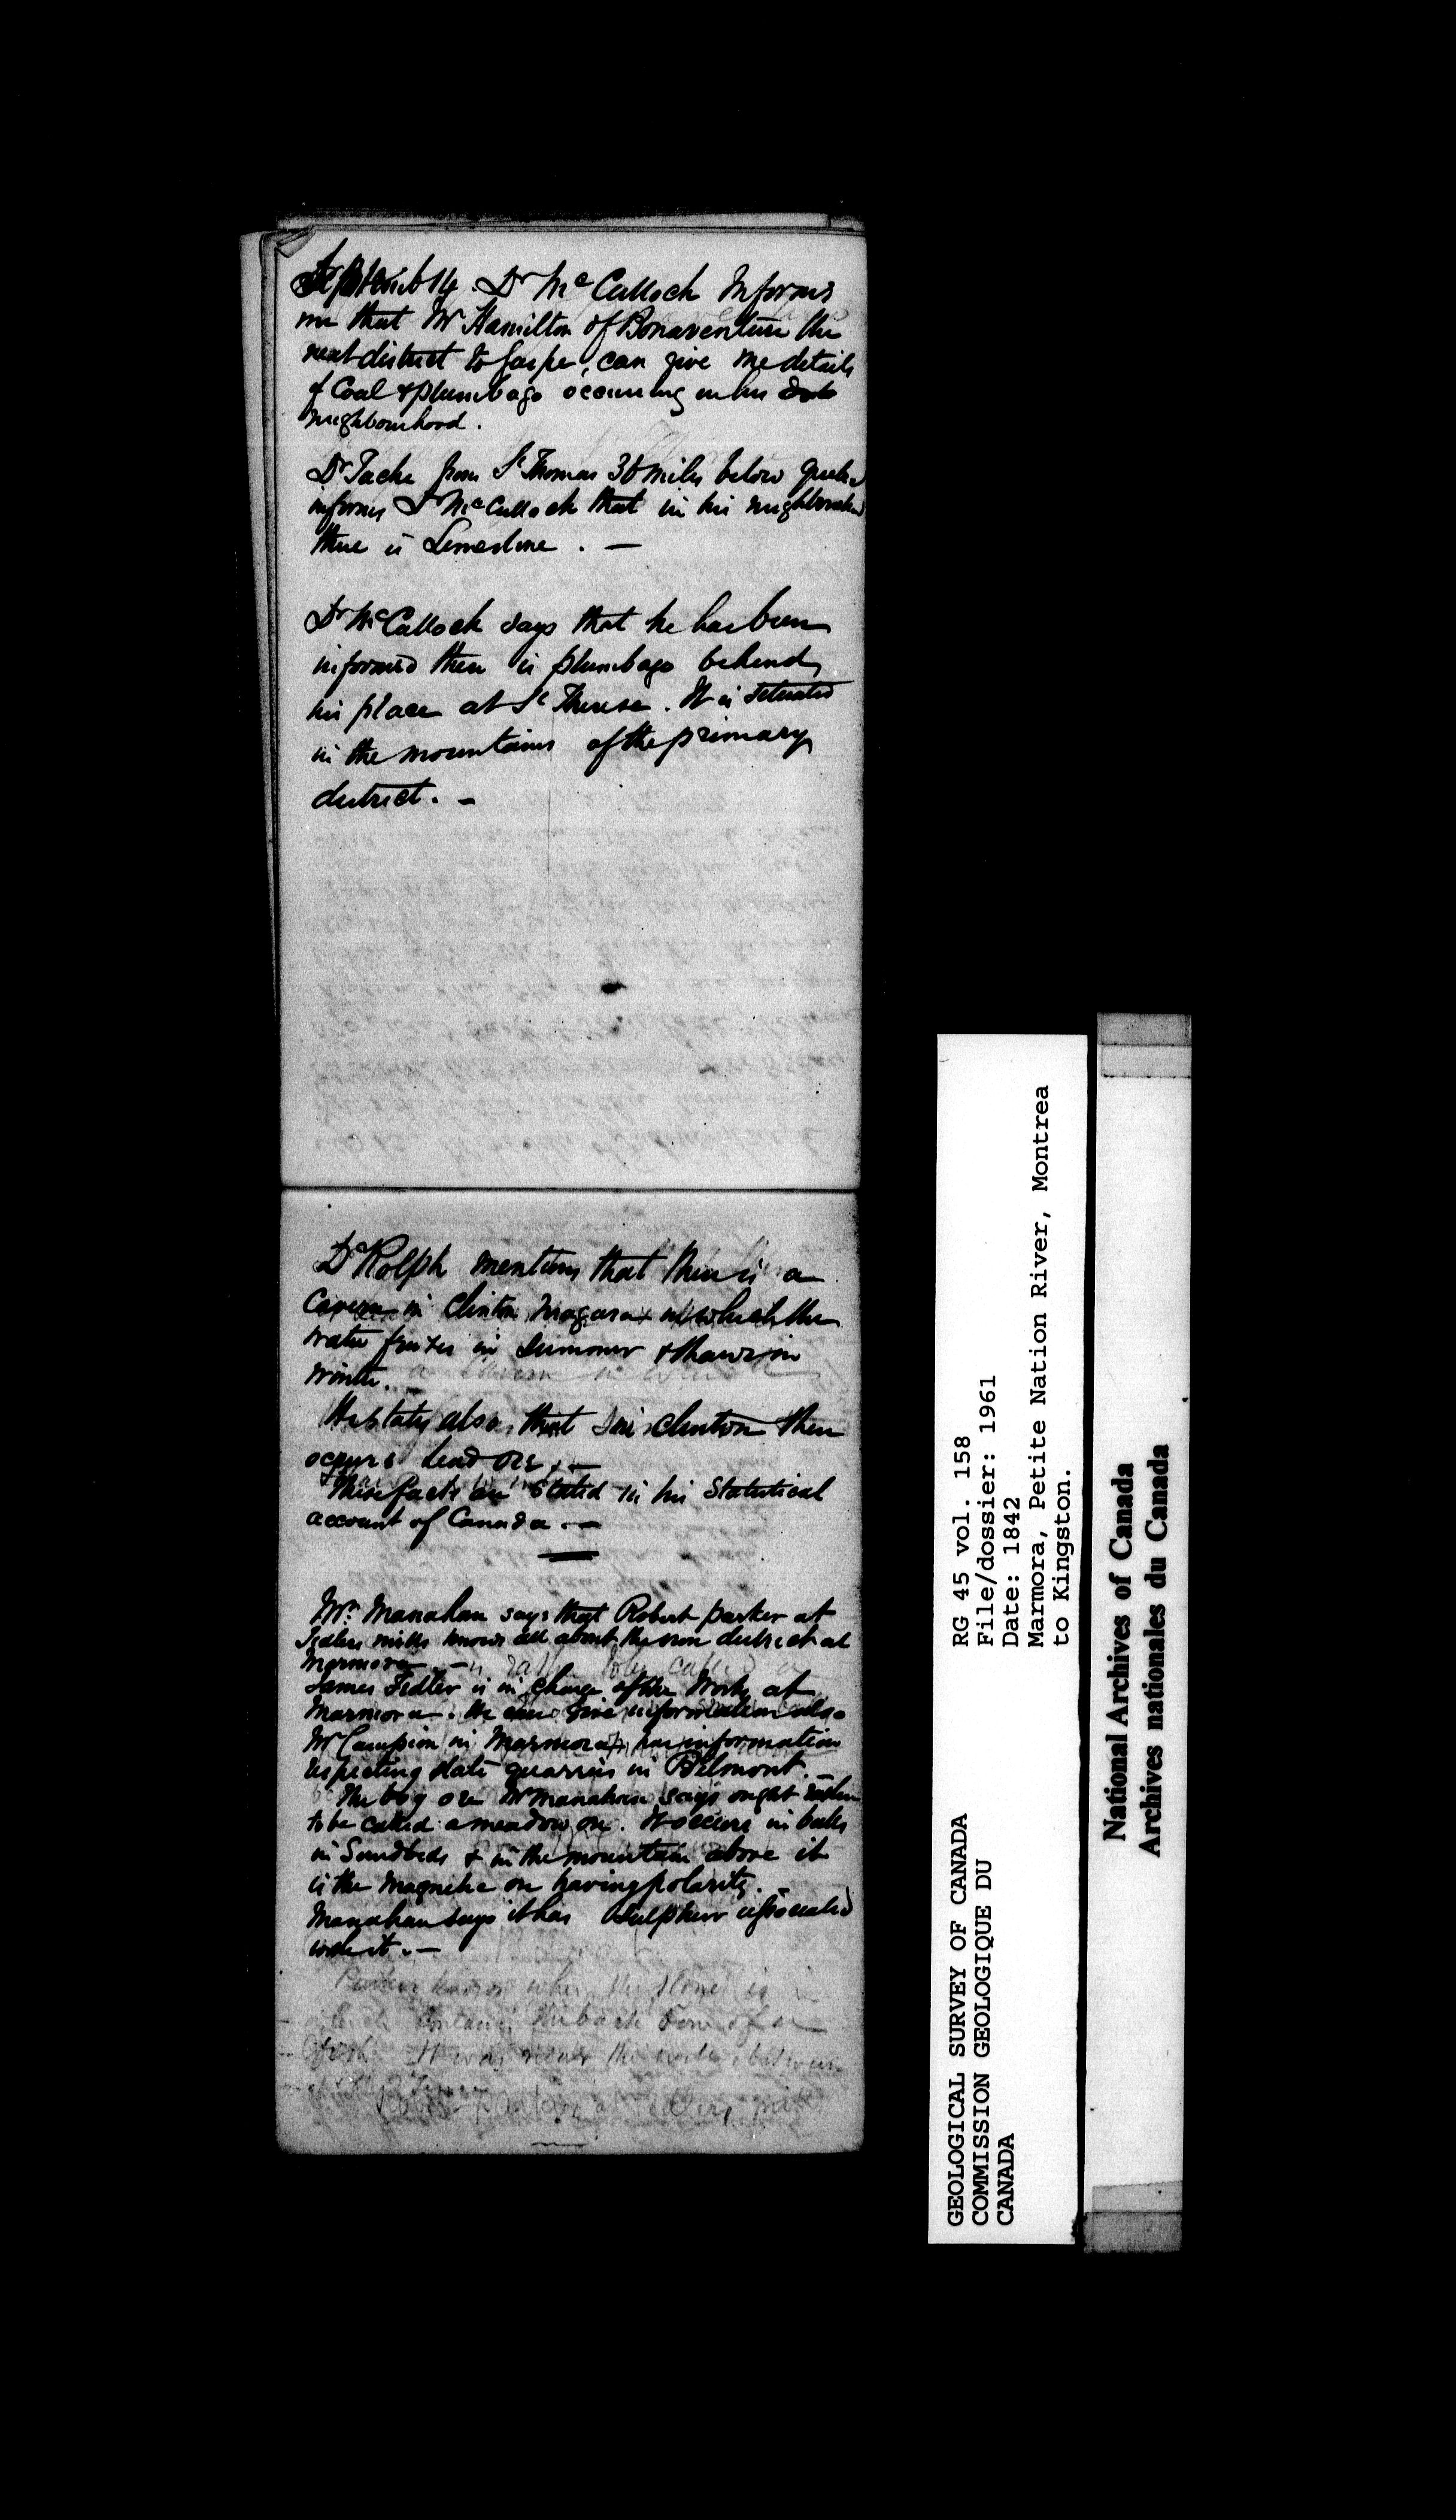 Septemb 14. Dr McCulloch Informs
me that Mr Hamilton of Bonaventure the
next district to Gaspe, can give me details
of Coal & plumbago occurring in his
neighbourhood.
Dr Tache from St Thomas 36 miles below Quebec
informs Dr McCulloch that in his neighbourhood
there is Limestone . —
Dr McCulloch says that he has been
informed there is plumbago behind
his place at St Therese. It is situated
in the mountains of the primary
district. —
Dr Rolph mentions that there is a
Cavern in Clinton Niagara in which the
water freezes in Summer & thaws in
winter. —
He states also that in Clinton there
occurs lead ore. —
These facts are stated in his Statistical
account of Canada. —
Mr. Manahan says that Robert parker at
Fidlers mills knows all about the iron district at
Marmora —
James Fidler is in charge of the Works at
Marmora. He can give information also
Mr Campion in Marmora has information
respecting slate quarries in Belmont. —
The bog ore Mr Manahan says ought rather
to be called a meadow ore. It occurs in beds
in Sandbeds & in the mountain above it
is the Magnetic ore having polarity. —
Manahan says it has Sulphur associated
with it. —
Parker knows where the stone is
the back bone of a
fish. It was near the
GEOLOGICAL SURVEY OF CANADA
COMMISSION GEOLOGIQUE DU
CANADA
RG 45 vol. 158
File/dossier: 1961
Date: 1842
Marmora, Petite Nation River, Montrea
to Kingston.
National Archives of Canada
Archives nationales du Canada